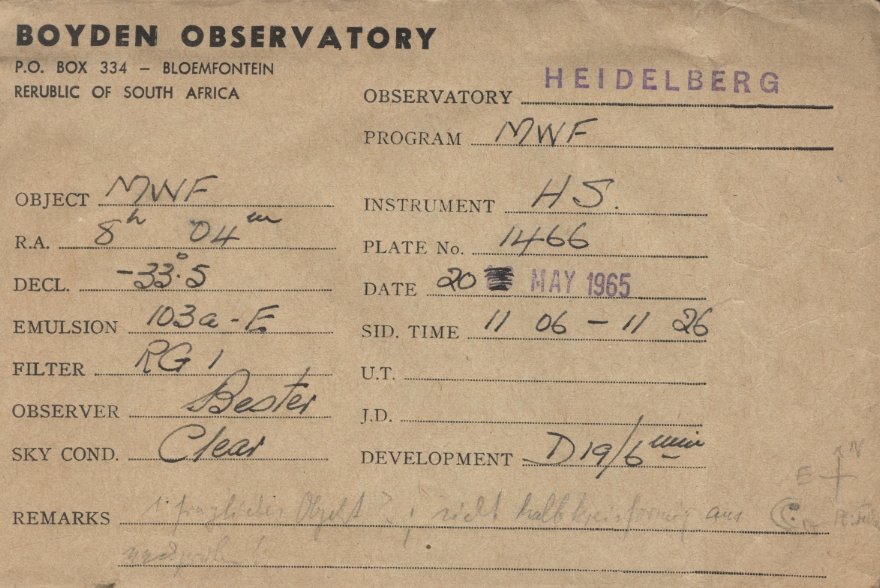 BOYDEN OBSERVATORY
P.O. BOX 334 – BLOEMFONTEIN
RERUBLIC OF SOUTH AFRICA
OBSERVATORY HEIDELBERG
PROGRAM MWF
OBJECT MWF
R.A. 8h 04m
DECL. -33°.5
EMULSION 103a-E
FILTER RG 1
OBSERVER Bester
SKY COND. Clear
INSTRUMENT HS.
PLATE No. 1466
DATE 20 MAY 1965
SID. TIME 11 06 – 11 26
U.T.
J.D.
DEVELOPMENT D19/6 min
N
E
REMARKS 1 fragliches Objekt?, sieht halbkreisförmig aus